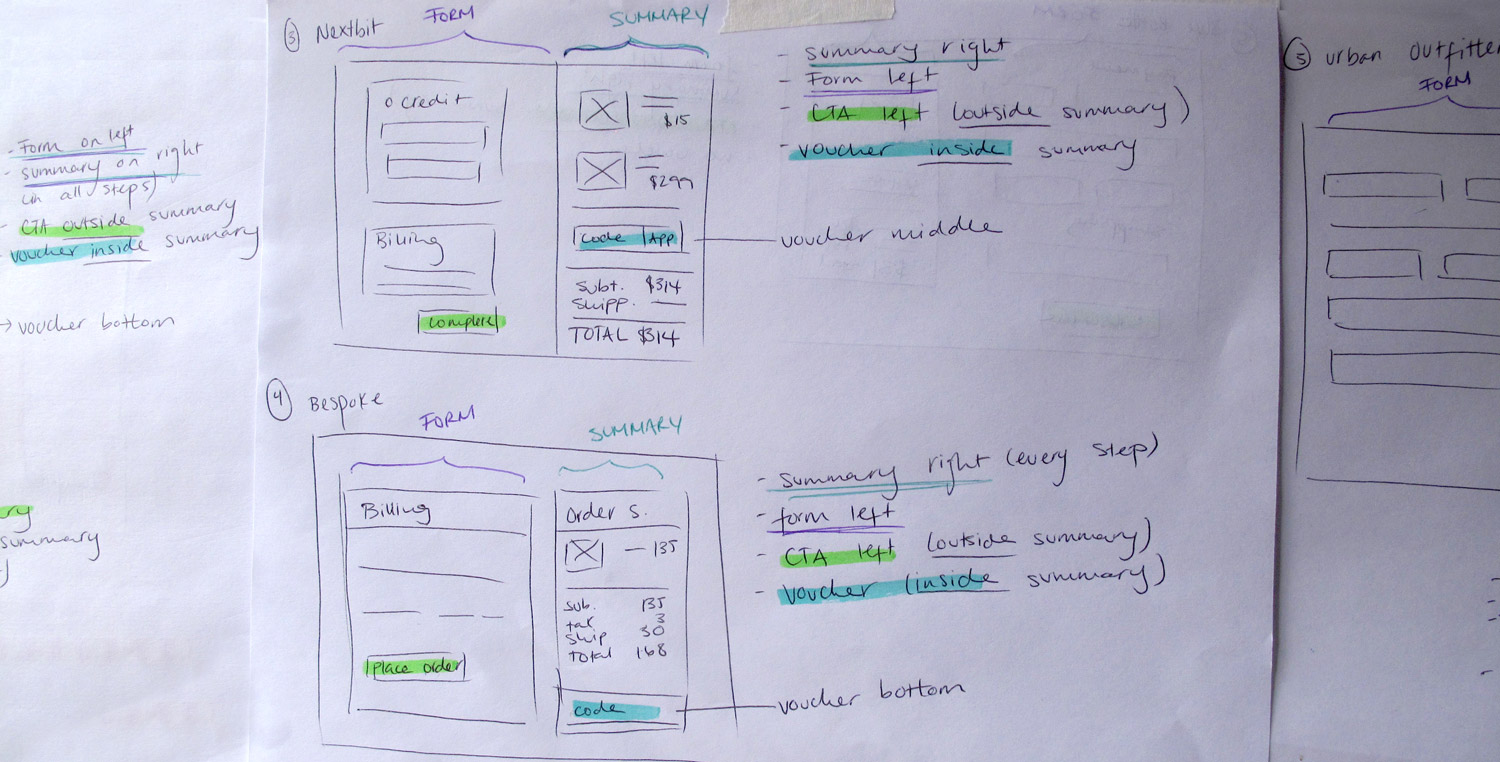 - Form on left
- summary on right
(in all steps)
- CTA outside summary
- voucher inside summary
→ voucher bottom
summary
③ Nextbit
FORM
SUMMARY
o credit
Billing
complete
$15
$299
code APP
subt. $314
shipp. —
TOTAL $314
- summary right
- Form left
- CTA left (outside summary)
- voucher inside summary
voucher middle
④ Bespoke
FORM
SUMMARY
Billing
place order
Order s.
— 135
sub. 135
tax 3
ship 30
Total 168
code
- summary right (every step)
- form left
- CTA left (outside summary)
- voucher (inside summary)
voucher bottom
⑤ urban outfitter
FORM